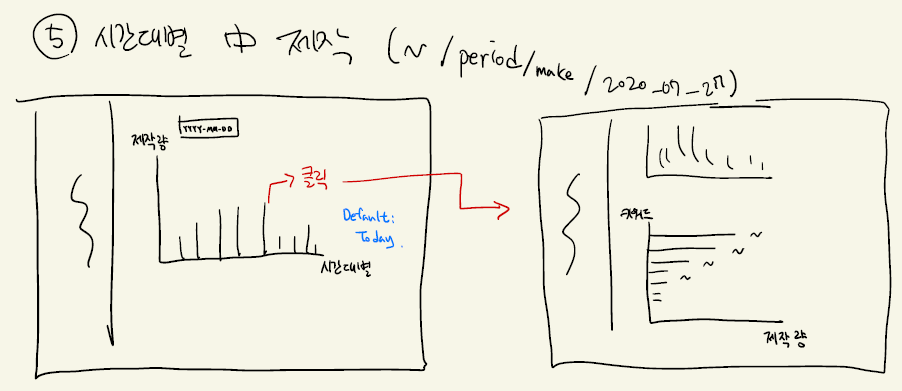 ⑤ 시간대별 中 제작 (~/period/make/2020_07_27)
제작량
YYYY-MM-DD
클릭
Default:
Today.
시간대별
키워드
~
~
~
~
제작량